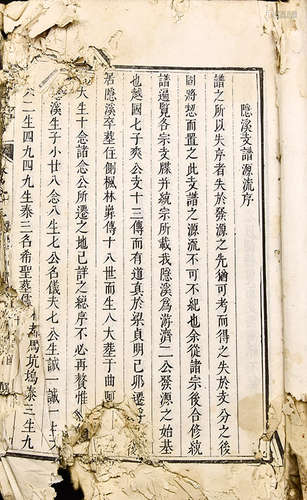 隱溪支譜源流序
譜之所以失序者失於發源之先猶可考而得之失於支分之後
則將恝而置之此支譜之源流不可不紀也余從諸宗後合修統
譜遍覽各宗支牒并統宗所載我隱溪為濟二公發源之始基
也越國七子爽公支十三傳而有道真於梁貞明己卯遷
若隱溪卒塟住側楓林
傳十八世而生人大塟子曲
大生十念諸念公所遷之地已詳之總序不必再贅惟
隱溪生子小廿八念八生七公名儀夫七公生誠一誠
二生四九四九生泰三名希聖塟
馬坑塢泰三生九